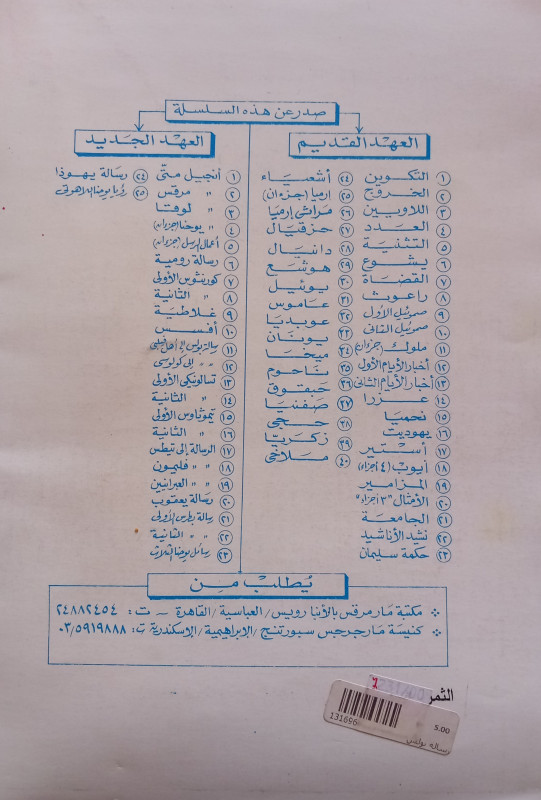 صدر عن هذه السلسلة
العهد القديم
١ التكوين
٢ الخروج
٣ اللاويين
٤ العدد
٥ التثنية
٦ يشوع
٧ القضاة
٨ راعوث
٩ صموئيل الأول
١٠ صموئيل الثانى
١١ ملوك (جزءان)
١٢ أخبار الأيام الأول
١٣ أخبار الأيام الثانى
١٤ عزرا
١٥ نحميا
١٦ يهوديت
١٧ أستير
١٨ أيوب (٤ أجزاء)
١٩ المزامير
٢٠ الأمثال "٣ أجزاء"
٢١ الجامعة
٢٢ نشيد الأناشيد
٢٣ حكمة سليمان
٢٤ أشعياء
٢٥ إرميا (جزءان)
٢٦ مراثى إرميا
٢٧ حزقيال
٢٨ دانيال
٢٩ هوشع
٣٠ يوئيل
٣١ عاموس
٣٢ عوبديا
٣٣ يونان
٣٤ ميخا
٣٥ ناحوم
٣٦ حبقوق
٣٧ صفنيا
٣٨ حجى
٣٩ زكريا
٤٠ ملاخى
العهد الجديد
١ أنجيل متى
٢ " مرقس
٣ " لوقا
٤ " يوحنا (جزءان)
٥ أعمال الرسل (جزءان)
٦ رسالة رومية
٧ كورنثوس الأولى
٨ " الثانية
٩ غلاطية
١٠ أفسس
١١ رسالة بولس إلى أهل فيلبى
١٢ " " إلى كولوسى
١٣ تسالونيكى الأولى
١٤ " الثانية
١٥ تيموثاوس الأولى
١٦ " الثانية
١٧ الرسالة إلى تيطس
١٨ " " فليمون
١٩ " " العبرانيين
٢٠ رسالة يعقوب
٢١ رسالة بطرس الأولى
٢٢ " " الثانية
٢٣ رسائل يوحنا الثلاث
٢٤ رسالة يهوذا
٢٥ رؤيا يوحنا اللاهوتى
يُطلب من
مكتبة مارمرقس بالأنبا رويس/العباسية/القاهرة - ت: ٢٤٨٨٢٤٥٤
كنيسة مارجرجس سبورتنج/الإبراهيمية/الإسكندرية ت: ٠٣/٥٩١٩٨٨٨
الثمر
131696
5.00
رساله بولس